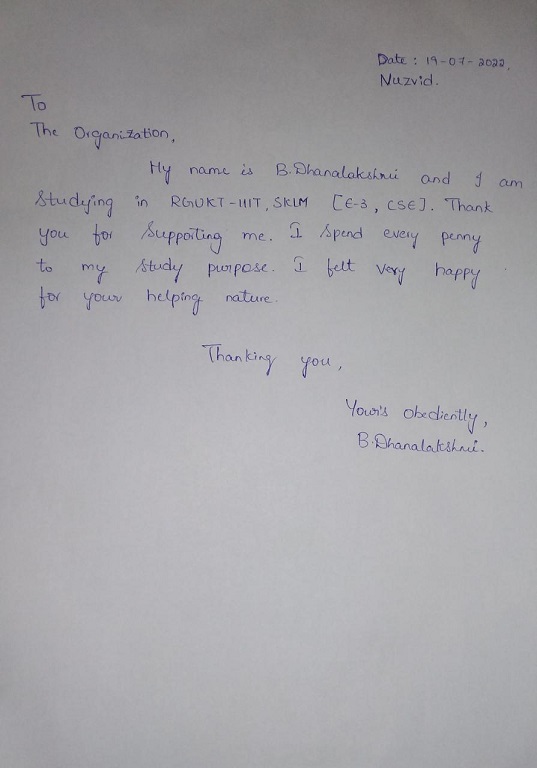 Date : 19-07-2022.
Nuzvid.
To
The Organization,
My name is B.Dhanalakshmi and I am
Studying in RGUKT-IIIT, SKLM [E-3, CSE]. Thank
you for Supporting me. I Spend every penny
to my Study purpose. I felt very happy
for your helping nature.
Thanking you,
Your's Obediently,
B.Dhanalakshmi.